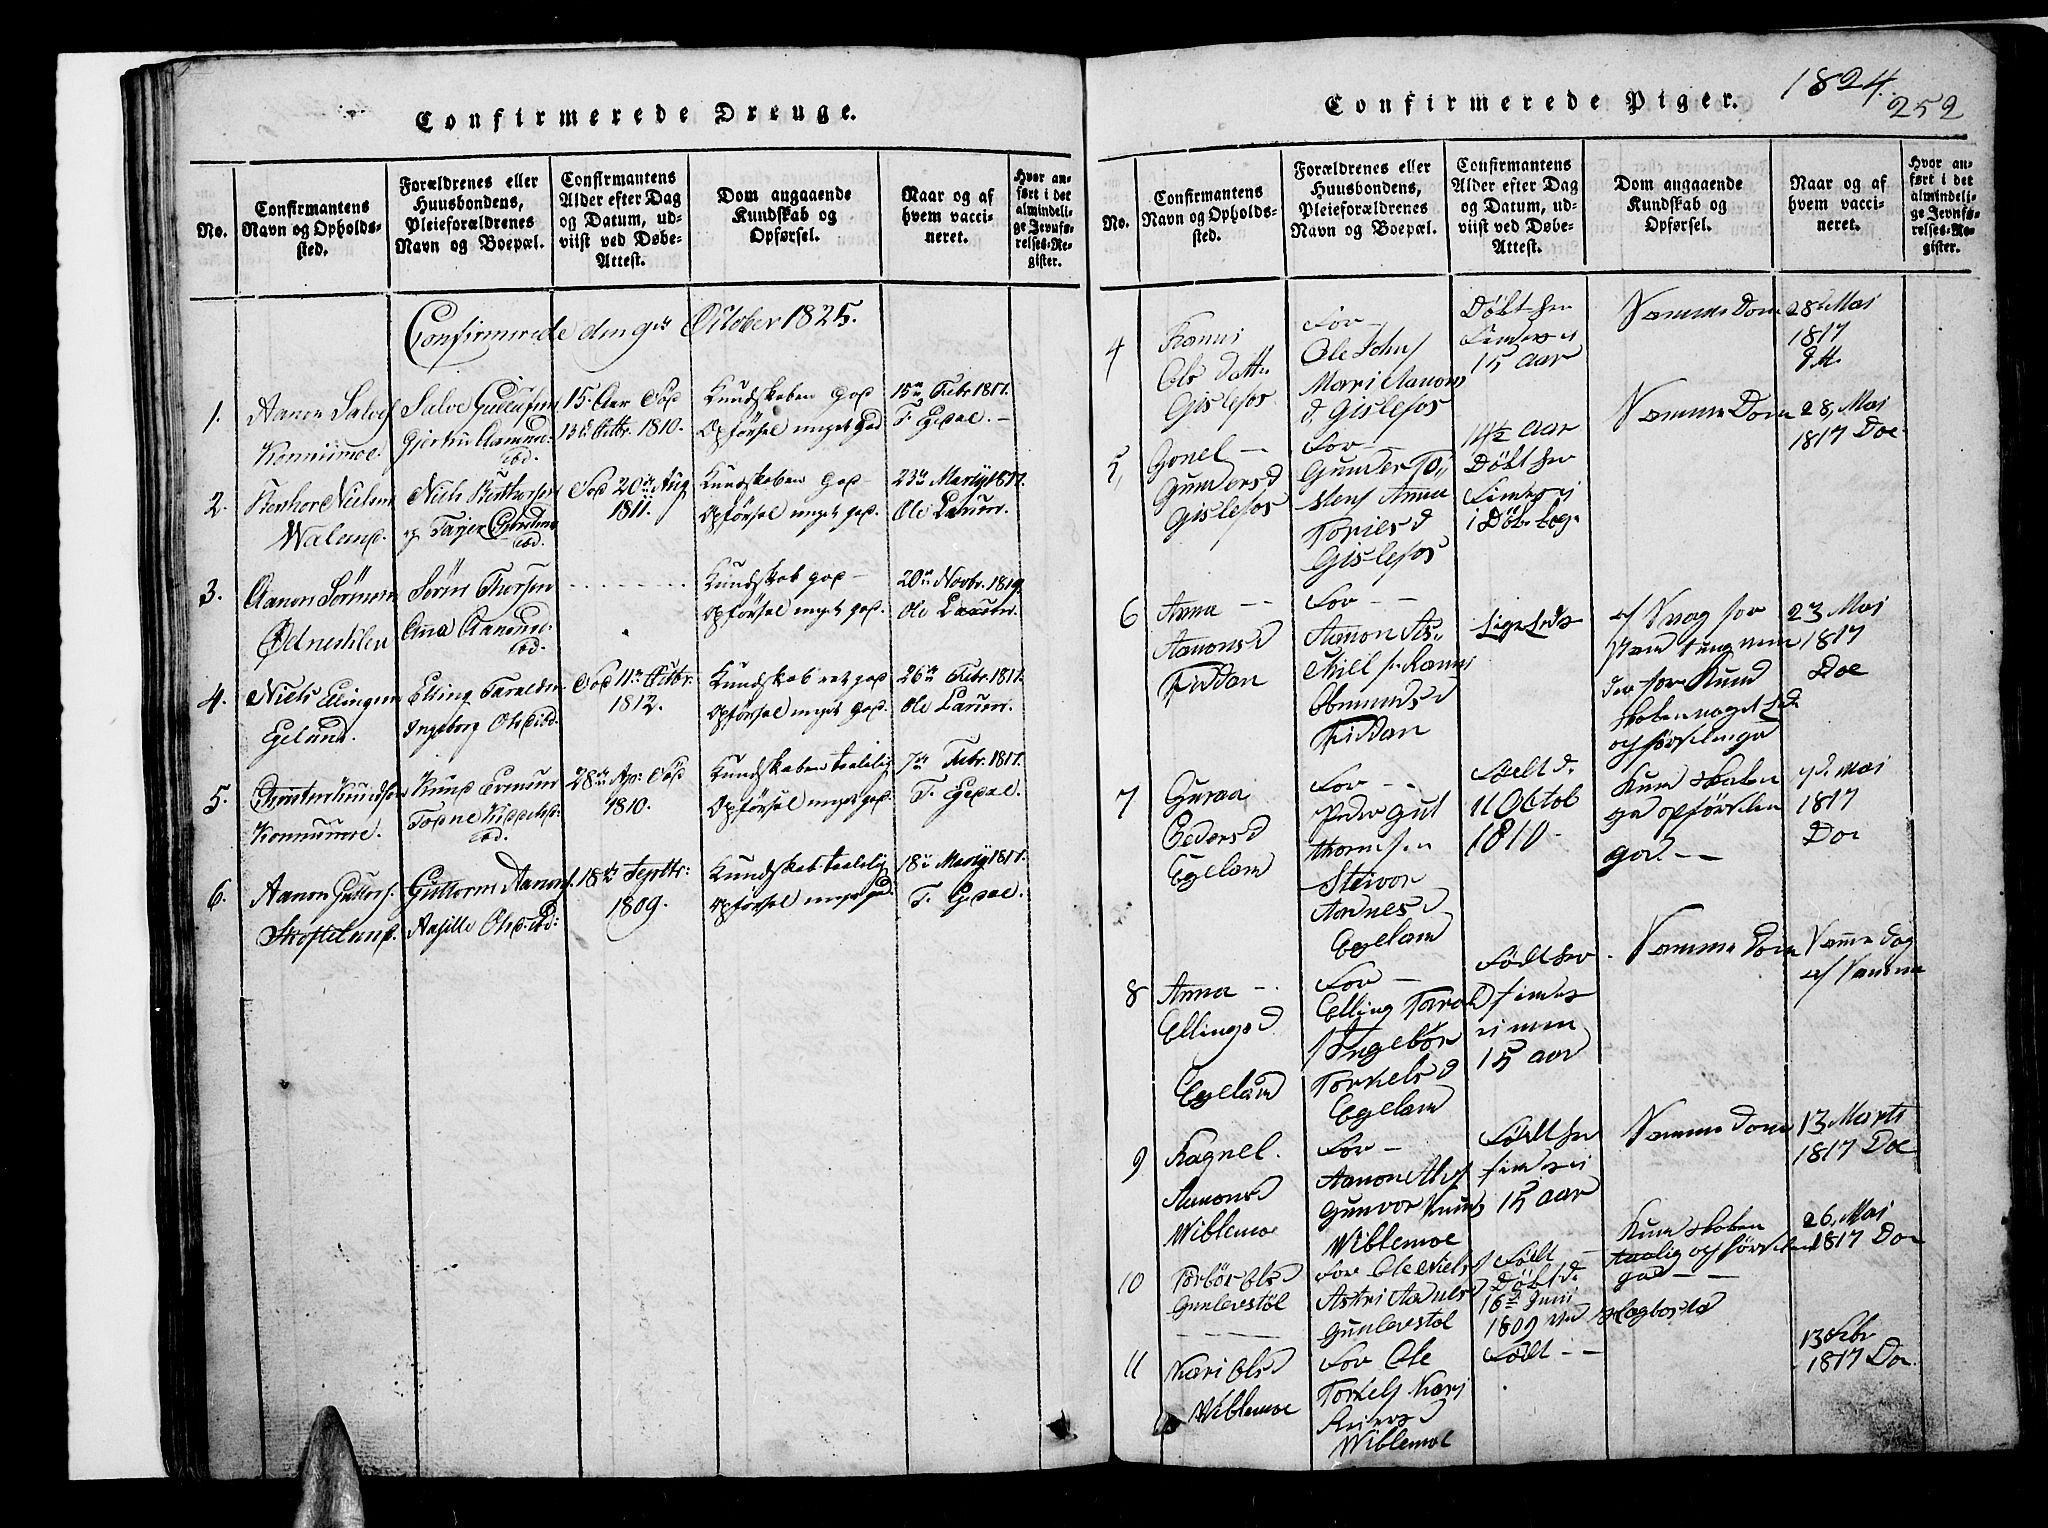 Confirmerede Drenge.
No.
Confirmantens
Navn og Opholds-
sted.
Forældrenes eller
Huusbondens,
Pleieforældrenes
Navn og Boepæl.
Confirmantens
Alder efter Dag
og Datum, ud-
viist ved Døbe-
Attest.
Dom angaaende
Kundskab og
Opførsel.
Naar og af
hvem vacci-
neret.
Hvor an-
ført i det
almindeli-
ge Jevnfø-
relses-Re-
gister.
Confirmerede den 9de October 1825.
1.
Aanon Salves
Konnismoe.
Salve Gullufsen
Gjertru Aamund.
ibd.
15 Aar Død
13de Octbr. 1810.
Kundskaben god
Opførsel meget god
15de Febr. 1817.
T. Egdal.
2.
Kenhor Nielsen
Waland.
Niels Kenhorsen
og Tager
ibd.
Død 20de Aug
1811.
Kundskaben god
Opførsel meget god.
23de Martij 1817.
Ole Lauum.
3.
Aanon Sörensen
Ödnestölen
Sören Thorsen
Ana Aanund.
ibd.
Kundskab god
Opførsel meget god.
20de Novbr. 1819.
Ole Lauum.
4.
Niels Ellingsen
Egeland.
Elling Taraldsen
Ingeborg Olsd. ibd.
Död 11te Octbr.
1812.
Kundskab ret god
Opførsel meget god.
26de Febr. 1817.
Ole Lauum.
5.
Knudsen
Konnismoe.
Knud
ibd.
28de Ap: Död
1810.
Kundskaben taalelig
Opførsel meget god.
7de Febr. 1817.
T. Egdal.
6.
Aanon Guttorms.
Skofteland.
Guttorm Aanons.
Aasille Olsd. ibd:
18de Septbr:
1809.
Kundskab taalelig
Opførsel meget god.
18de Martij 1817.
T. Egdal.
Confirmerede Piger.
1824.
252
No.
Confirmantens
Navn og Opholds-
sted.
Forældrenes eller
Huusbondens,
Pleieforældrenes
Navn og Boepæl.
Confirmantens
Alder efter Dag
og Datum, ud-
viist ved Døbe-
Attest.
Dom angaaende
Kundskab og
Opførsel.
Naar og af
hvem vacci-
neret.
Hvor an-
ført i det
almindeli-
ge Jevnfø-
relses-Re-
gister.
4
Ranni
Ols datter
Gislefos
For
Ole Johns
Mari Aanons
d Gislefos
Döbt her
findes ei
15 aar
Samme Dom
28de Mai
1817
5,
Gonel
Gunders d
Gislefos
For
Gunder To
stens Anna
Tories d
Gislefos
14 1/2 aar
Döbt her
findes ei
i Döbe bog
Samme Dom
28, Mai
1817 Do
6
Anna
Aanons d
Fiddan
For
Aanon As
kiels Ranni
Omunds d
Fiddan
Ligeleds
af Svag for
stand tung nem
derfor Kund
skaben noget
opførselen god
23 Mai
1817
Do
7
Guroa
Peders d
Egeland
For
Peder Gut
thormsen
Steivor
Aadnes d
Egeland
Födt d.
11 Octob
1810
Kundskaben
god opførselen
god
7d. Mai
1817
Do
8
Anna
Ellings d
Egeland
For
Elling Tarald
s Ingebör
Torkels d
Egeland
Födt her
findes
ei men
15 aar
Samme Dom
Samme dag
af Samme
9
Ragnel.
Aanons d
Wiblemoe
For
Aanon Als
Gunvor Knuds
Wiblemoe
Födt her
findes ei
15 aar
Samme Dom
13 Marts
1817 Do
10
Torbör Ols d
Gunlevestöl
For Ole Niels
Astri Aadnes d
Gunlevstol
Födt
Döbt d.
16de Juni
1809 ved Hægbostad
Kundskaben
taalig opførselen
god
26, Mai
1817 Do
11
Kari Ols d
Wiblemoe
For Ole
Torkels Kari
Reiers d
Wiblemoe
Födt
13 Febr
1817 Do.